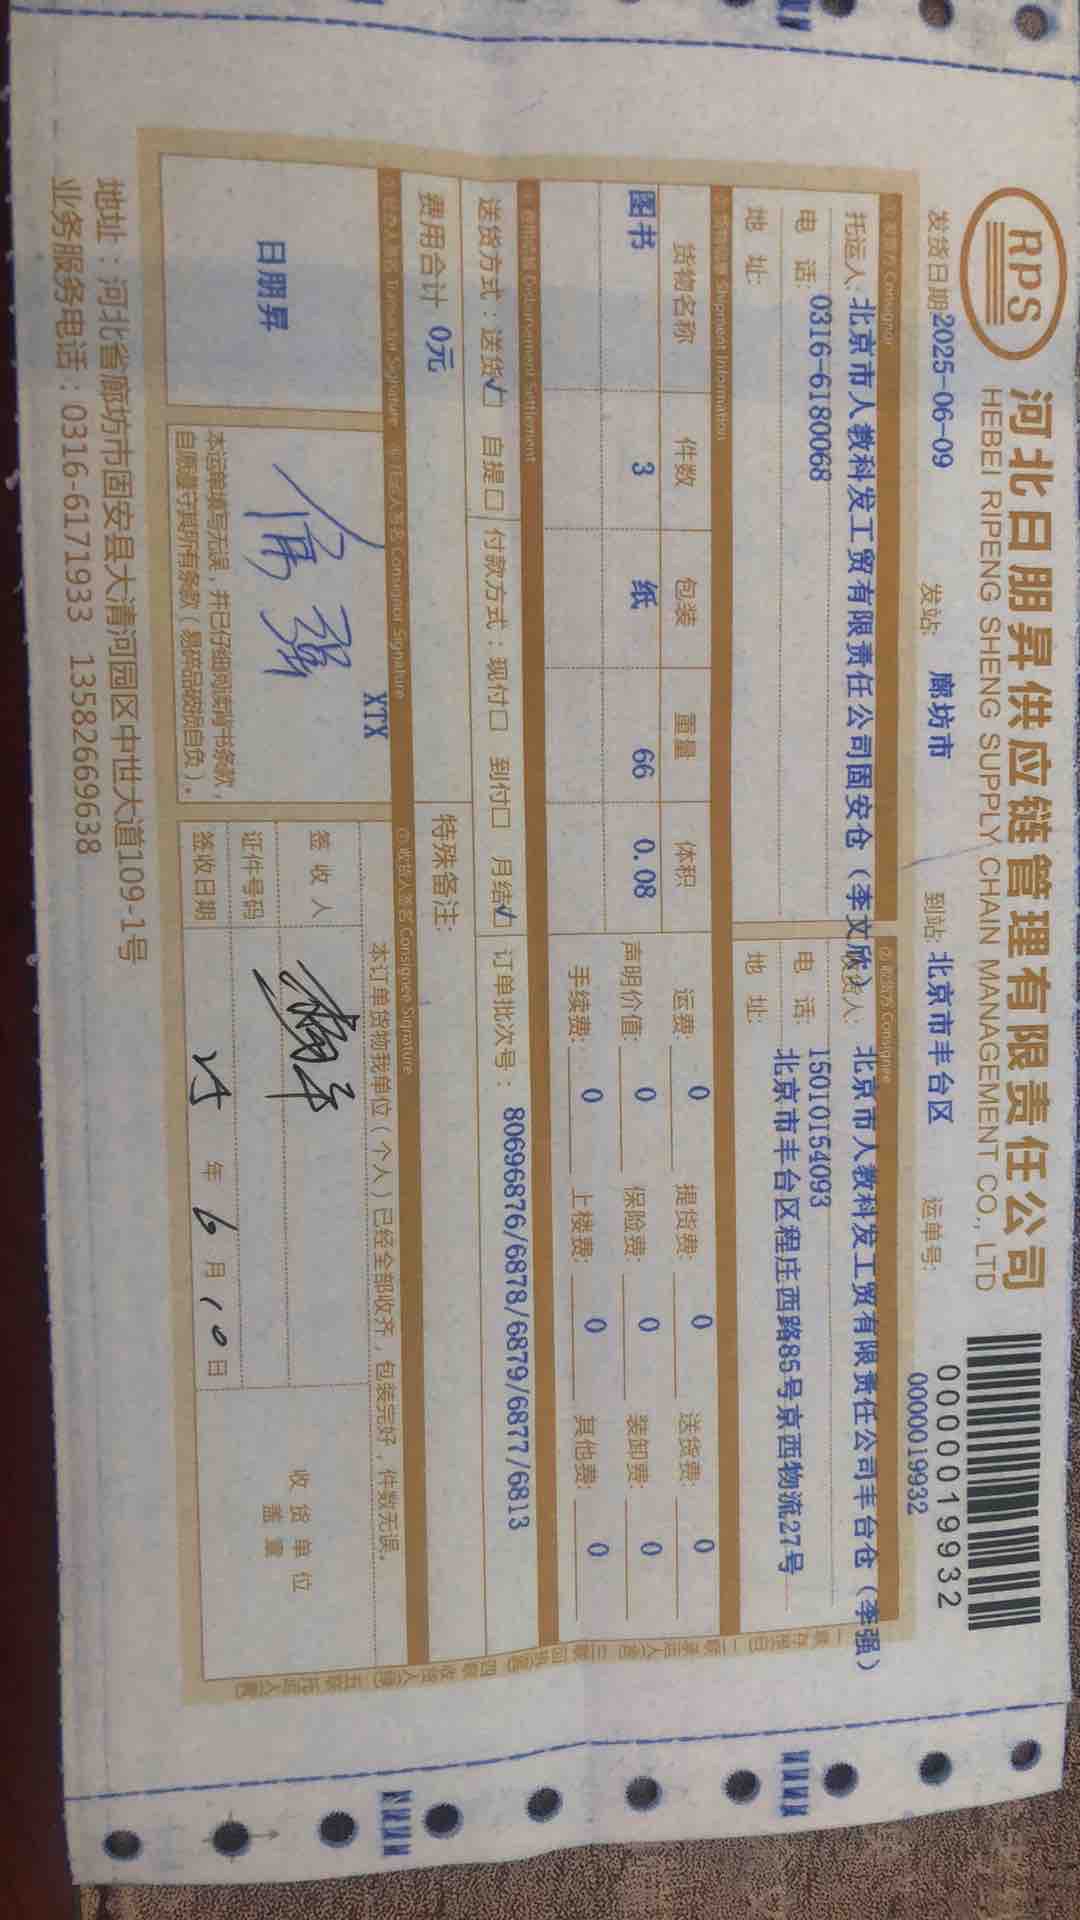 RPS 河北日朋昇供应链管理有限责任公司
HEBEI RIPENG SHENG SUPPLY CHAIN MANAGEMENT CO., LTD
0000019932
发货日期2025-06-09 发站: 廊坊市 到站: 北京市丰台区 运单号: 0000019932
Consignor Consignee
托运人: 北京市人教科发工贸有限责任公司固安仓（李文欣） 货人: 北京市人教科发工贸有限责任公司丰台仓（李强）
电 话: 0316-6180068 电 话: 15010154093
地 址: 地 址: 北京市丰台区程庄西路85号京西物流27号
Shipment Information
货物名称 件数 包装 重量 体积 运费: 0 提货费: 0 送货费: 0
图书 3 纸 66 0.08 声明价值: 0 保险费: 0 装卸费: 0
手续费: 0 上楼费: 0 其他费: 0
Disbursement Settlement
送货方式：送货√口 自提口 付款方式：现付口 到付口 月结√口 订单批次号： 80696876/6878/6879/6877/6813
费用合计 0元 特殊备注:
Signature Consignor Signature 收货人签名 Consignee Signature
XTX
日朋昇
本订单货物我单位（个人）已经全部收齐，包装完好，件数无误。
签 收 人
证件号码
签收日期 25 年 6 月 10 日
收货单位
盖章
本运单填写无误，并已仔细阅读背书条款，
自愿遵守其所有条款（易碎品破损自负）。
地址：河北省廊坊市固安县大清河园区中世大道109-1号
业务服务电话：0316-6171933 13582669638